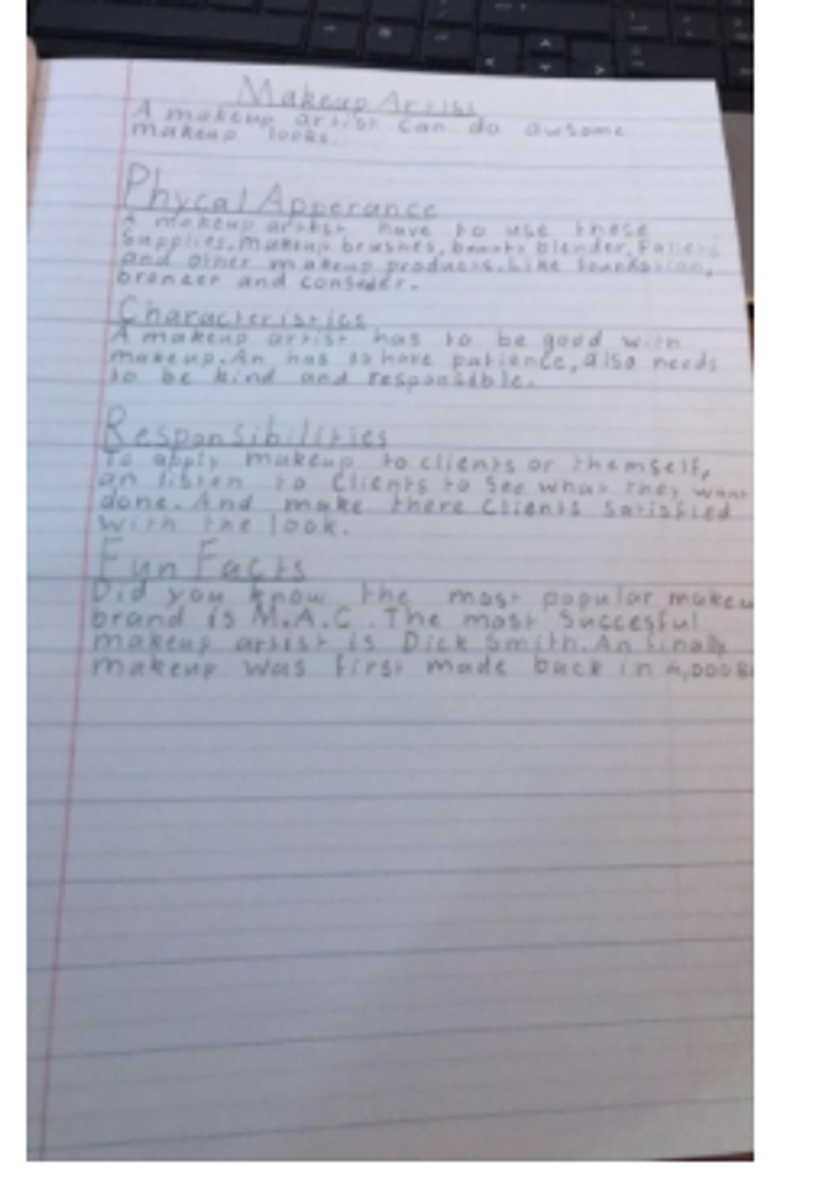 Makeup Artist
A makeup artist can do awsome
makeup looks.
Phycal Apperance
A makeup artist have to use these
supplies. Makeup brushes, beauty blender,
and other makeup products. Like foundation,
bronzer and
Characteristics
A makeup artist has to be good with
makeup. An has to have patience, also needs
to be kind and responsible.
Responsibilities
To apply makeup to clients or themself,
an listen to clients to see what they want
done. And make there clients satisfied
with the look.
Fun Facts
Did you know the most popular makeu
brand is M.A.C. The most Succesful
makeup artist is Dick Smith. An finally
makeup was first made back in 4,000B